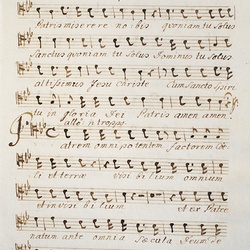 Patris miserere nobis quoniam tu solus
Sanctus quoniam tu solus Dominus tu solus
altissimus Jesu Christe Cum Sancto Spiri
tu in gloria Dei Patris amen amen
Patrem omnipotentem factorem coe
li et terrae visi bilium omnium
et invisi bilium et ex Patre
natum ante omnia saecula Deum de